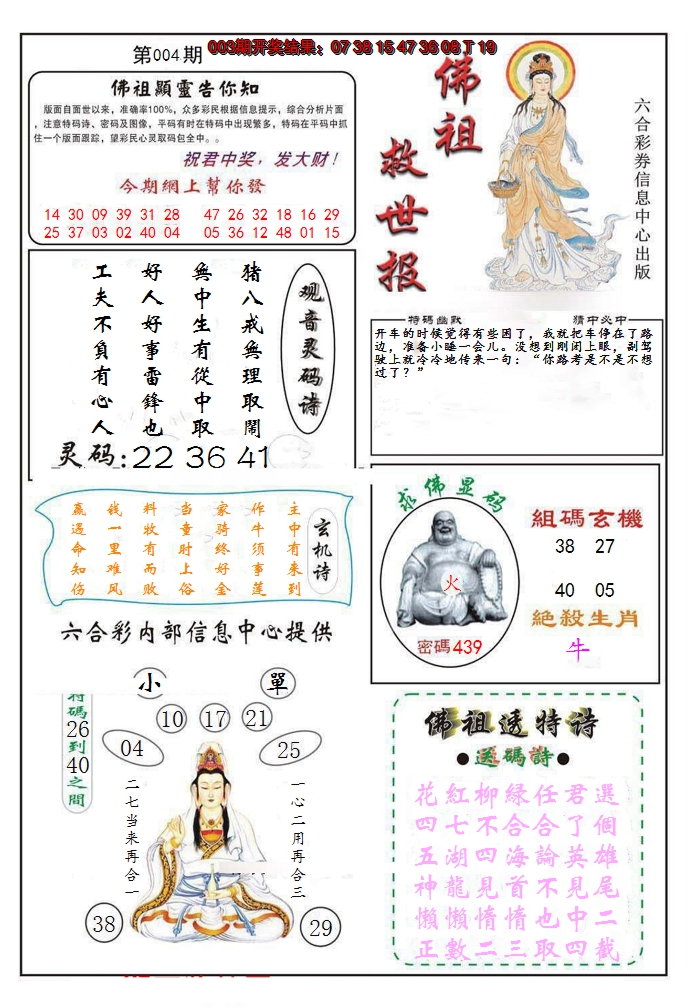 第004期
003期开奖结果：07 38 15 47 36 08 T 19
佛祖顯靈告你知
版面自面世以来，准确率100%，众多彩民根据信息提示，综合分析片面
，注意特码诗、密码及图像，平码有时在特码中出现繁多，特码在平码中抓
住一个版面跟踪，望彩民心灵取码包全中。。
祝君中奖，发大财！
今期網上幫你發
14 30 09 39 31 28 47 26 32 18 16 29
25 37 03 02 40 04 05 36 12 48 01 15
佛祖救世报
六合彩券信息中心出版
观音灵码诗
猪八戒無理取鬧
無中生有從中取
好人好事雷鋒也
工夫不負有心人
灵码:22 36 41
特碼幽默
猜中必中
开车的时候觉得有些困了，我就把车停在了路
边，准备小睡一会儿。没想到刚闭上眼，副驾
驶上就冷冷地传来一句：“你路考是不是不想
过了？”
玄机诗
主中有来到
作牛须事莲
家骑终好金
当童时上俗
料牧有而败
钱一里难风
赢遇命知伤
六合彩内部信息中心提供
求佛显码
火
密碼439
組碼玄機
38 27
40 05
絕殺生肖
牛
小
單
特碼26到40之間
10 17 21
04
25
二七当来再合一
一心二用再合三
38
29
佛祖透特诗
●送碼詩●
花紅柳緑任君選
四七不合合了個
五湖四海論英雄
神龍見首不見尾
懶懶惰惰也中二
正數二三取四截